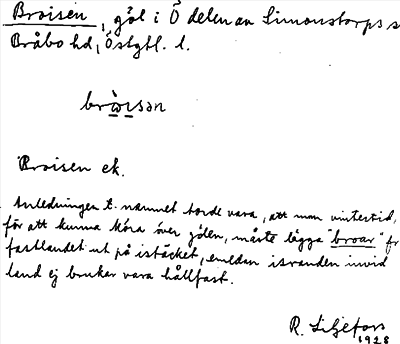 Broisen, göl i Ö delen av Simonstorps s
Bråbo hd, Östgtl. l.
Broisen ek.
Anledningen t. namnet torde vara, att man vintertid,
för att kunna köra över gölen, måste lägga "broar" fr
fastlandet ut på istäcket, emedan isranden invid
land ej brukar vara hållfast.
R. Liljefors
1928